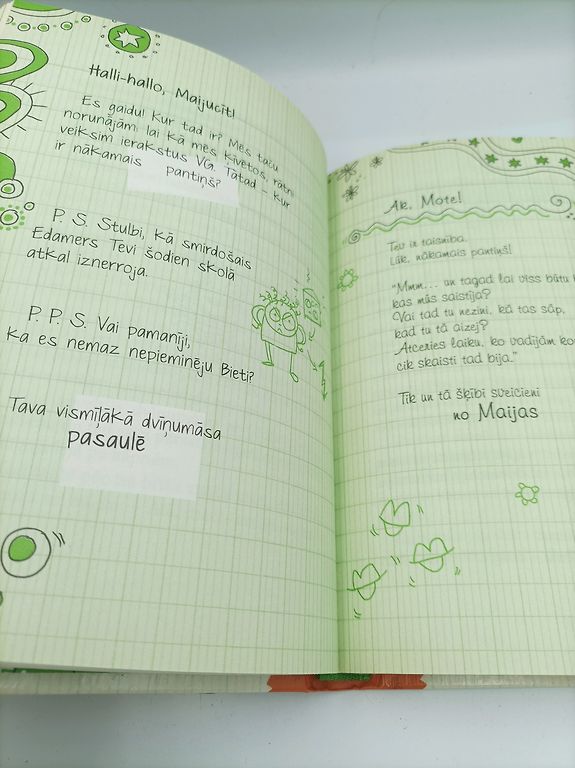 Halli-hallo, Maijucīt!
Es gaidu! Kur tad ir? Mēs taču
norunājām, lai kā mēs ķīvētos, rātni
veiksim ierakstus VG. Tātad – kur
ir nākamais pantiņš?
P. S. Stulbi, kā smirdošais
Edamers Tevi šodien skolā
atkal iznerroja.
P. P. S. Vai pamanīji,
ka es nemaz nepieminēju Bieti?
Tava vismīļākā dvīņumāsa
pasaulē
Ak, Mote!
Tev ir taisnība.
Lūk, nākamais pantiņš!
"Mmm... un tagad lai viss būtu
kas mūs saistīja?
Vai tad tu nezini, kā tas sāp,
kad tu tā aizej?
Atceries laiku, ko vadījām
cik skaisti tad bija."
Tik un tā šķībi sveicieni
no Maijas